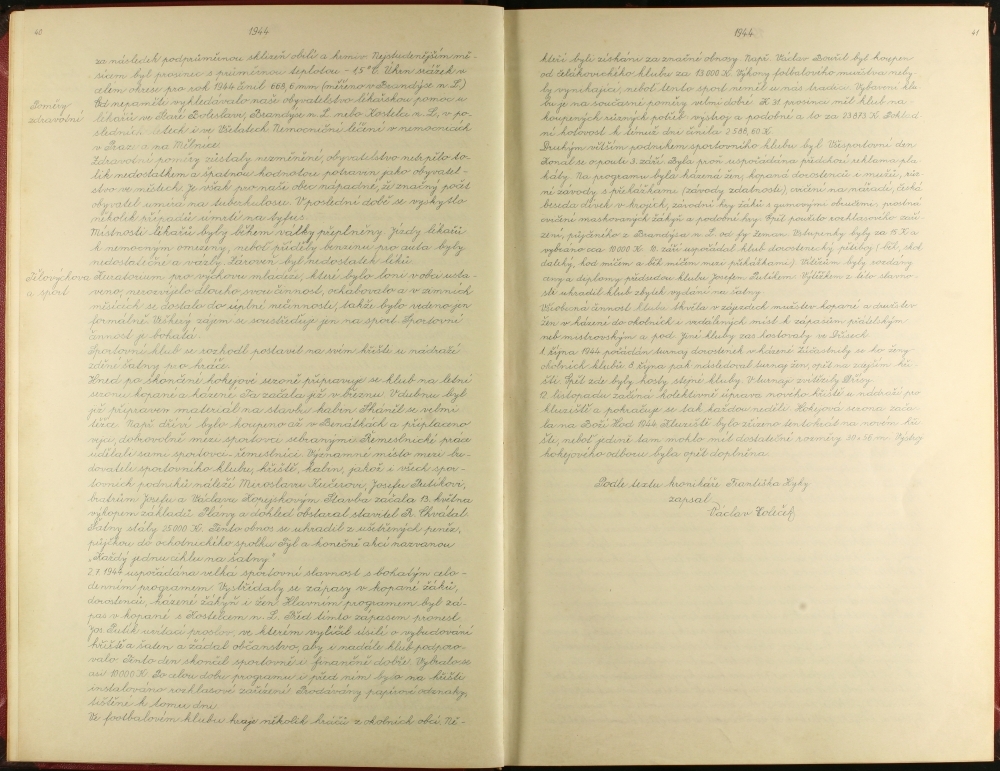 40
1944
za následek podprůměrnou sklizeň obilí a krmiv. Nejstudenějším mě-
sícem byl prosinec s průměrnou teplotou -1,5° C. Úhrn srážek v
celém okrese pro rok 1944 činil 668,6 mm (měřeno v Brandýse n. L.)
Poměry
zdravotní
Od nepaměti vyhledávalo naše obyvatelstvo lékařskou pomoc u
lékařů ve Staré Boleslavi, Brandýse n. L. nebo Kostelci n. L., v po-
sledních letech i ve Všetatech. Nemocniční léčení v nemocnicích
v Praze a na Mělníce.
Zdravotní poměry zůstaly nezměněné, obyvatelstvo netrpělo to-
lik nedostatkem a špatnou hodnotou potravin jako obyvatel-
stvo v městech. Je však pro naše obci nápadné, že značný počet
obyvatel umírá na tuberkulosu. V poslední době se vyskytlo
několik případů úmrtí na tyfus.
Místnosti lékařů byly během války přeplněny. Jízdy lékařů
k nemocným omezeny, neboť příděly benzinu pro auta byly
nedostatečné a vázly. Zároveň byl nedostatek léků.
Tělovýchova
a sport
Kuratorium pro výchovu mládeže, které bylo loni v obci usta-
veno, nerozvíjelo dlouho svou činnost, ochabovalo a v zimních
měsících se dostalo do úplné nečinnosti, takže bylo vedeno jen
formálně. Veškerý zájem se soustřeďuje jen na sport. Sportovní
činnost je bohatá.
Sportovní klub se rozhodl postavit na svém hřišti u nádraží
zděné šatny pro hráče.
Hned po skončené hokejové sezoně připravuje se klub na letní
sezonu kopané a házené. Ta začala již v březnu. V dubnu byl
již připraven materiál na stavbu kabin. Sháněl se velmi
těžce. Např. dříví bylo koupeno až v Benátkách a připlaceno
na ně, dobrovolně mezi sportovci sebranými. Řemeslnické práce
udělali sami sportovci-řemeslníci. Významné místo mezi bu-
dovateli sportovního klubu, hřiště, kabin, jakož i všech spor-
tovních podniků náleží Miroslavu Kučerovi, Josefu Putíkovi,
bratrům Josefu a Václavu Kopejskovým. Stavba začala 13. května
výkopem základů. Plány a dohled obstaral stavitel R. Chvátal.
Šatny stály 25 000 K. Tento obnos se uhradil z ušetřených peněz,
půjčkou do ochotnického spolku Tyl a konečně akcí nazvanou
„Každý jednu cihlu na šatny."
2. 7. 1944 uspořádána velká sportovní slavnost s bohatým celo-
denním programem. Vystřídaly se zápasy v kopané žáků,
dorostenců, házené žákyň i žen. Hlavním programem byl zá-
pas v kopané s Kostelcem n. L. Před tímto zápasem pronesl
Jos. Putík uvítací proslov, ve kterém vylíčil úsilí o vybudování
hřiště a šaten a žádal občanstvo, aby i nadále klub podporo-
valo. Tento den skončil sportovně i finančně dobře. Vybralo se
asi 10 000 K. Po celou dobu programu i před ním bylo na hřišti
instalováno rozhlasové zařízení. Prodávány papírové odznaky,
tištěné k tomu dni.
Ve footbalovém klubu hraje několik hráčů z okolních obcí. Ně-
1944
41
kteří byli získáni za značné obnosy. Např. Václav Bovšil byl koupen
od čelákovického klubu za 13 000 K. Výkony fotbalového mužstva neby-
ly vynikající, neboť tento sport neměl u nás tradici. Vybavení klu-
bu je na současné poměry velmi dobré. K 31. prosinci měl klub na-
koupených různých potřeb, výstroj a podobné a to za 23 873 K. Poklad-
ní hotovost k témuž dni činila 2 588,60 K.
Druhým větším podnikem sportovního klubu byl Všesportovní den.
Konal se o pouti 3. září. Byla proň uspořádána předchozí reklama pla-
káty. Na programu byla házená žen, kopaná dorostenců i mužů, růz-
né závody s překážkami (závody zdatnosti), cvičení na nářadí, česká
beseda dívek v krojích, závodní hry žáků s gumovými obručemi, prostná
cvičení maskovaných žákyň a podobné hry. Opět použito rozhlasového zaří-
zení, půjčeného z Brandýsa n. L. od fy Zeman. Vstupenky byly za 15 K a
vybráno cca 12000 K. 10. září uspořádal klub dorostenecký pětiboj (běh, skok
daleký, hod míčem a běh mužů mezi překážkami). Vítězům byly rozdány
ceny a diplomy předsedou klubu Josefem Putíkem. Výtěžkem z této slavno-
sti uhradil klub zbytek vydání na šatny.
1. října 1944 pořádán turnaj dorostenek v házené.
12. listopadu začíná kolektivně úprava nového hřiště u nádraží pro
kluziště a pokračuje se tak každou neděli. Hokejová sezona zača-
la na Boží Hod 1944. Kluziště bylo zřízeno tentokrát na novém hři-
šti, neboť jedině tam mohlo mít dostatečné rozměry 30 x 56 m. Výstroj
hokejového odboru byla opět doplněna.
Podle textu kronikáře Františka Hyky
zapsal
Václav Holeček